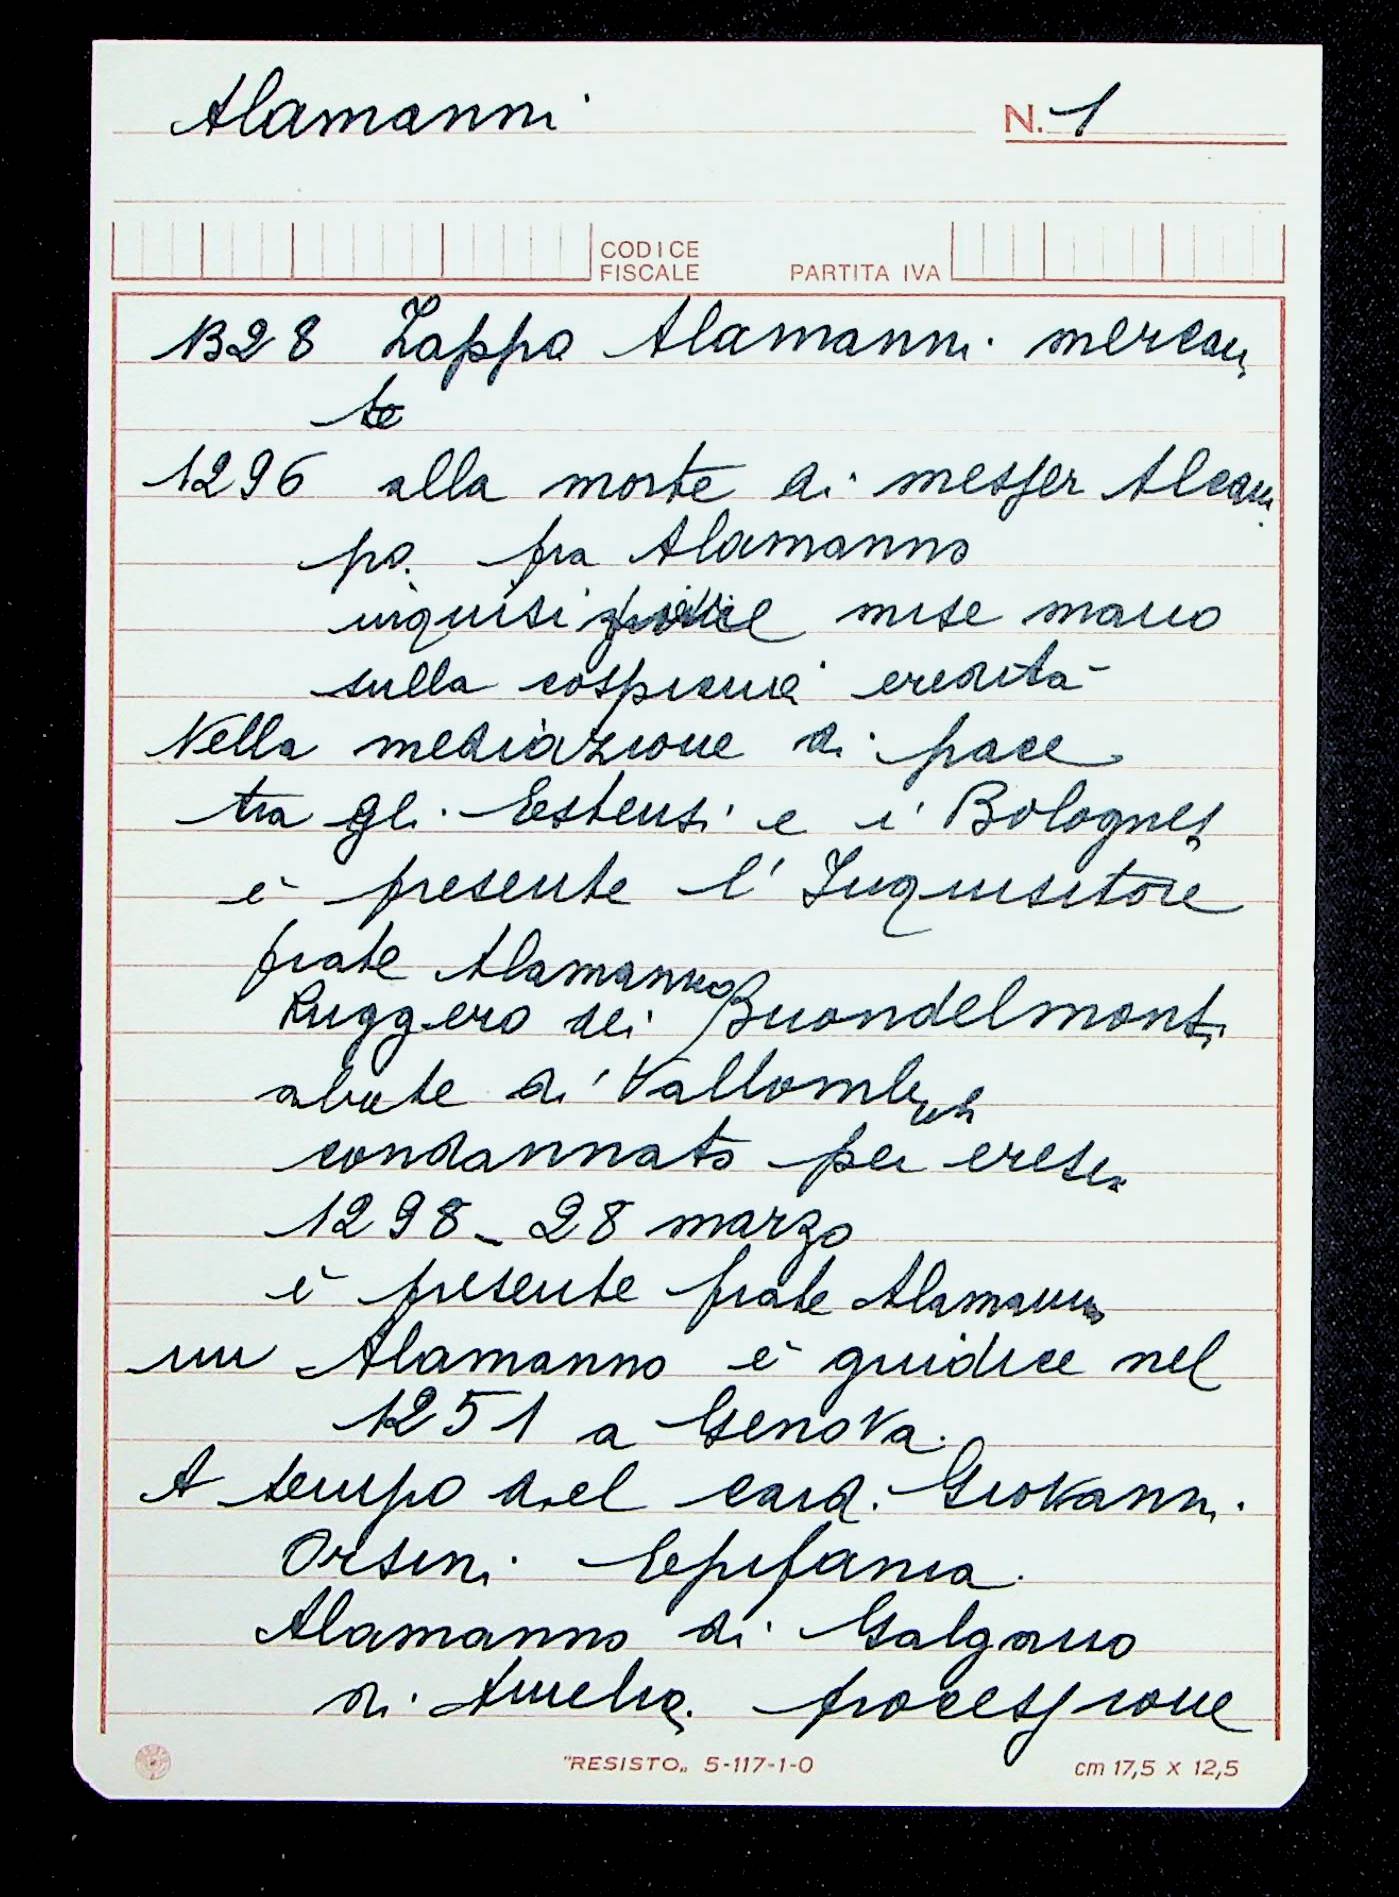 Alamanni
N. 1
CODICE
FISCALE
PARTITA IVA
1328 Lappo Alamanni mercan
te
1296 alla morte di messer Alcam
po. fra Alamanno
inquisi mise mano
sulla cospicua eredità
Nella mediazione di pace
tra gli Estensi e i Bolognesi
è presente l'Inquisitore
frate Alamanno
Ruggero dei Buondelmonti
abate di Vallombrosa
condannato per eresia
1298 - 28 marzo
è presente frate Alamanno
un Alamanno è giudice nel
1251 a Genova.
A tempo del card. Giovanni
Orsini Epifania
Alamanno di Galgano
di Amelia. processione
"RESISTO" 5-117-1-0
cm 17,5 x 12,5